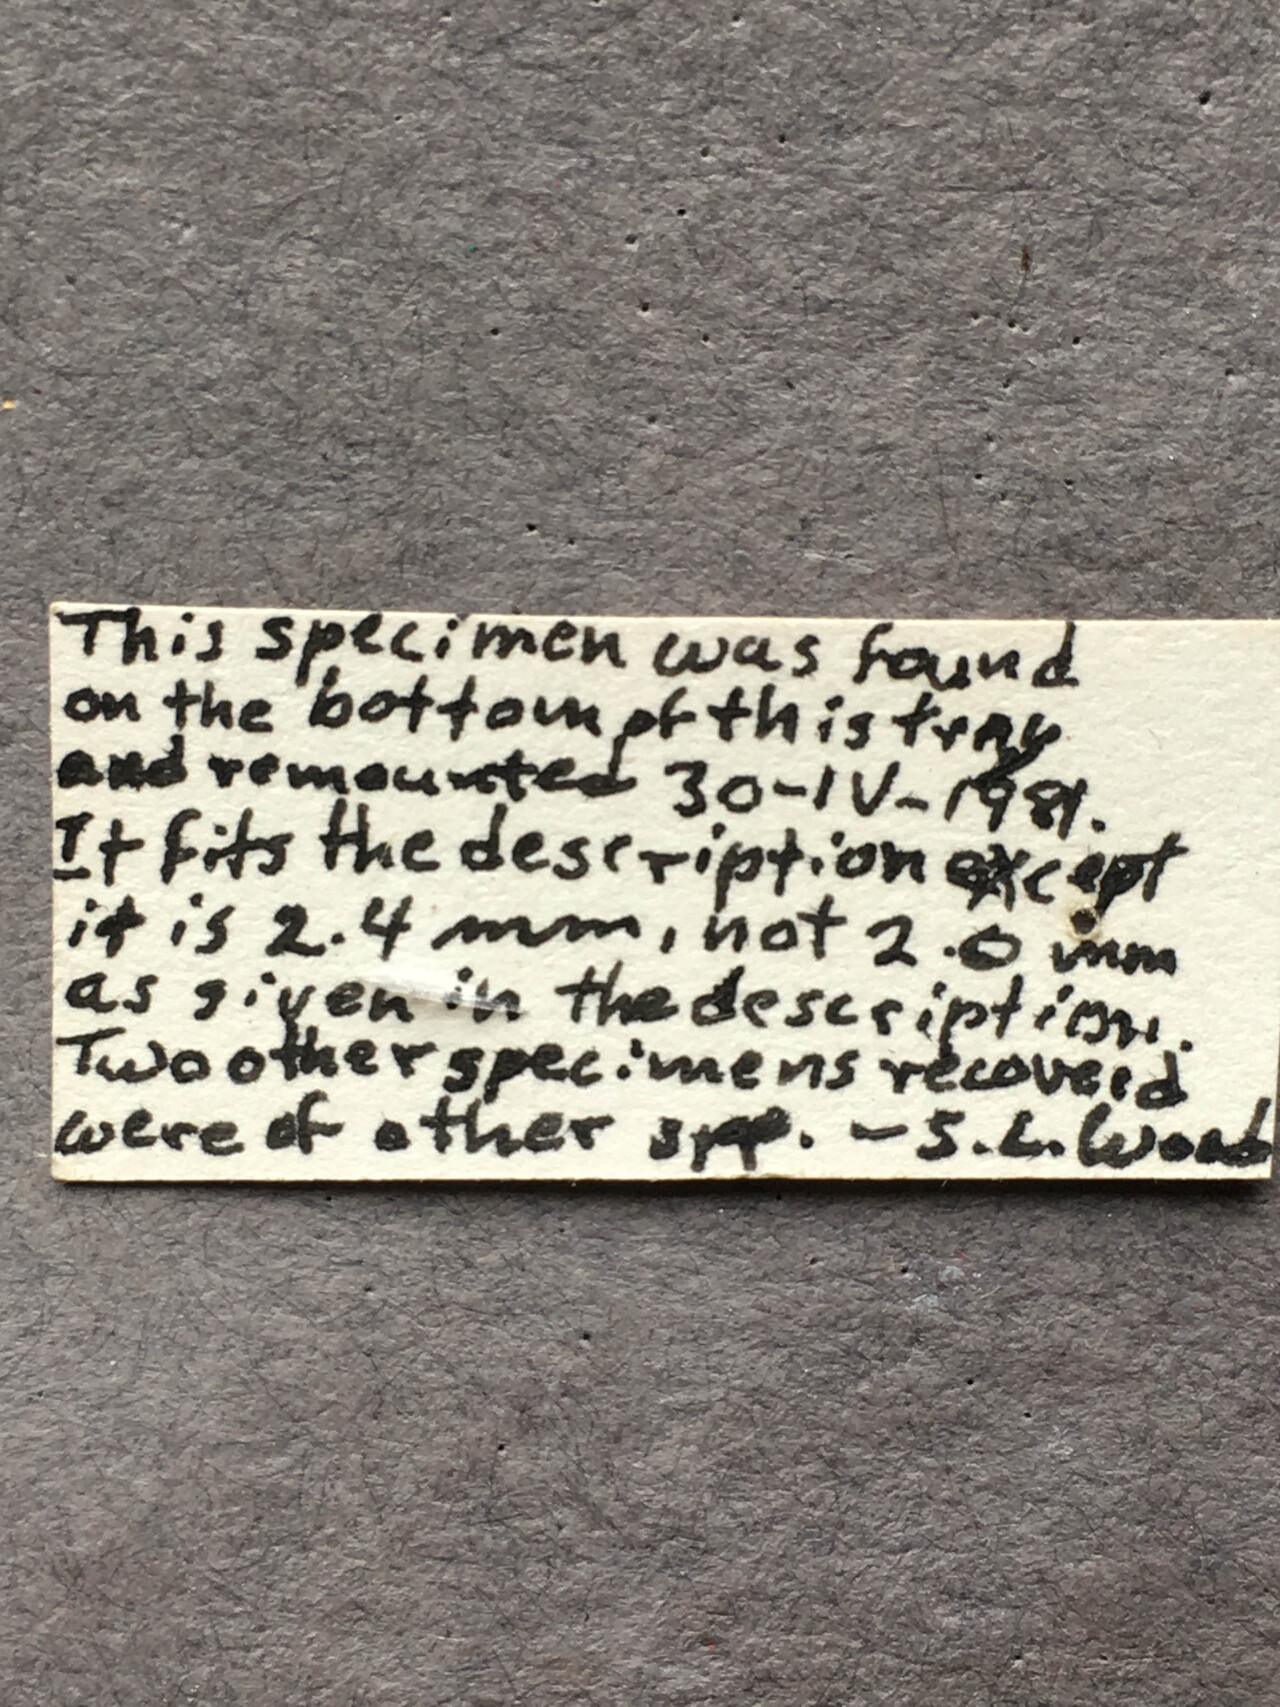 This specimen was found
on the bottom of this tray
and remounted 30-IV-1981.
It fits the description except
it is 2.4 mm, not 2.0 mm
as given in the description.
Two other specimens recoverd
were of other spp. - S.L. Wood